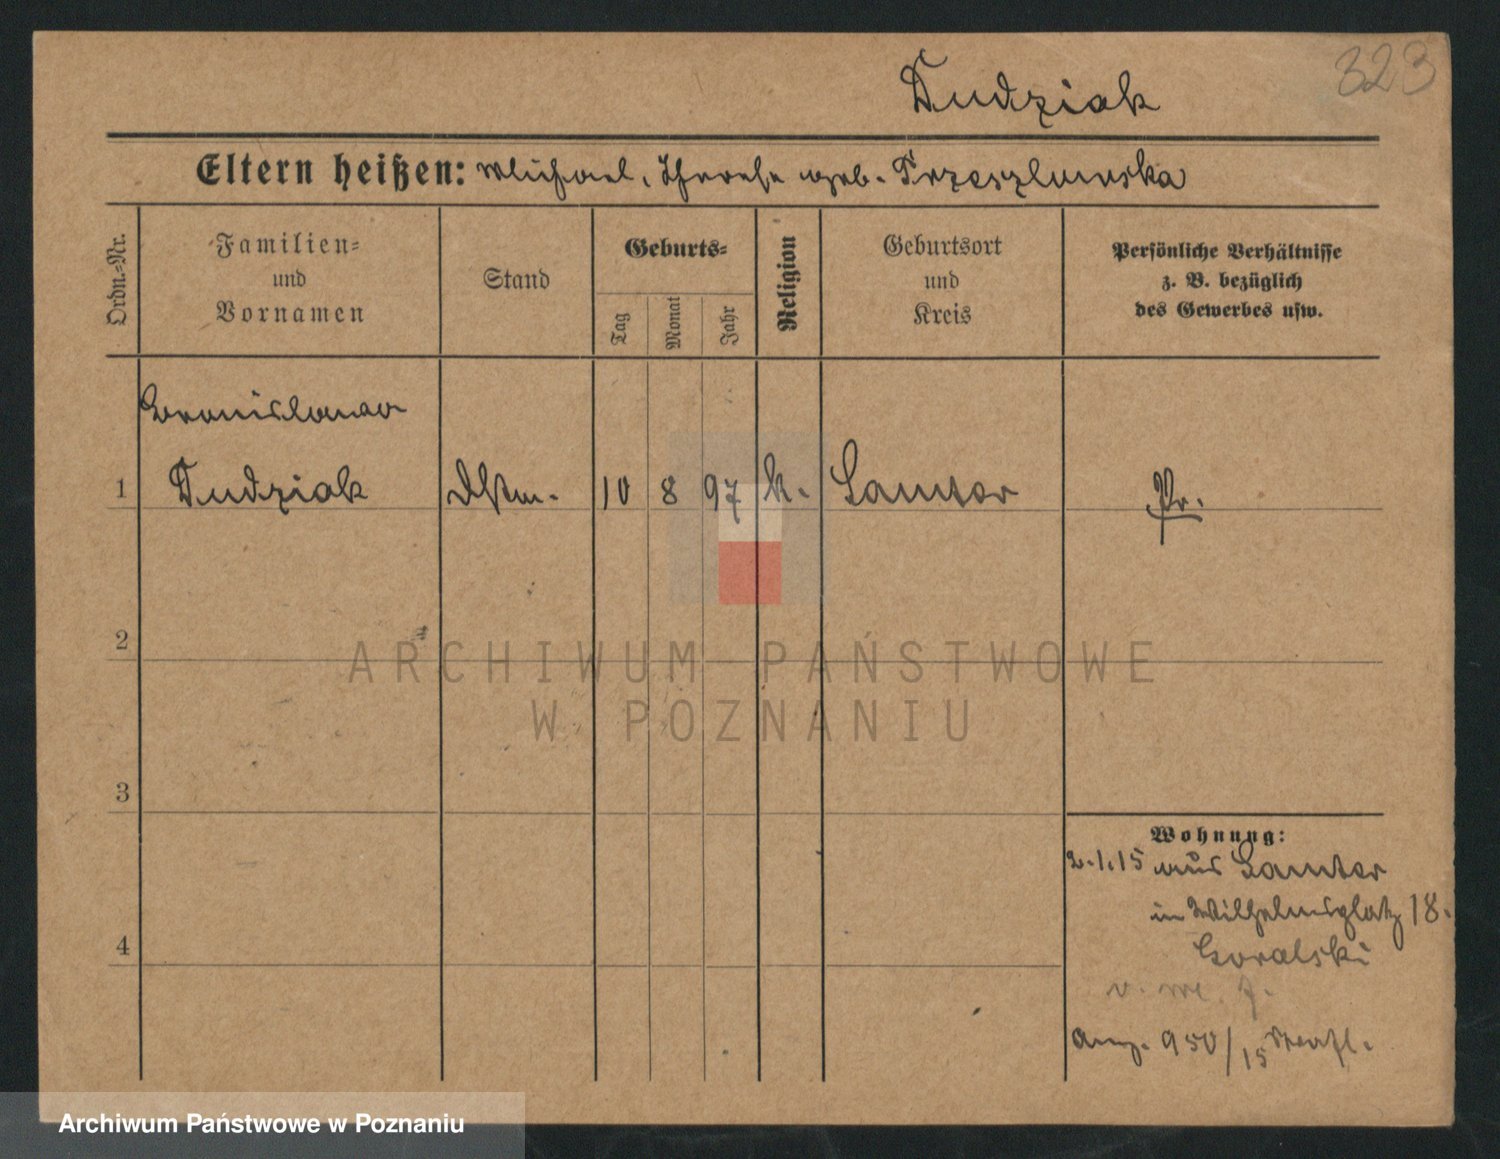 323
Dudziak
Eltern heißen: Michael, Therese geb. Trzeszlewska
Ordn.-Nr.
Familien- und Vornamen
Stand
Geburts-
Tag
Monat
Jahr
Religion
Geburtsort und Kreis
Persönliche Verhältnisse z. B. bezüglich des Gewerbes usw.
Bronislawa
1 Dudziak 10 8 97 k. Samter Pr.
2
3
Wohnung:
2.1.15 aus Samter
in Wilhelmsplatz 18.
Goralski
4
v. 
950/15
ARCHIWUM PAŃSTWOWE
W POZNANIU
Archiwum Państwowe w Poznaniu